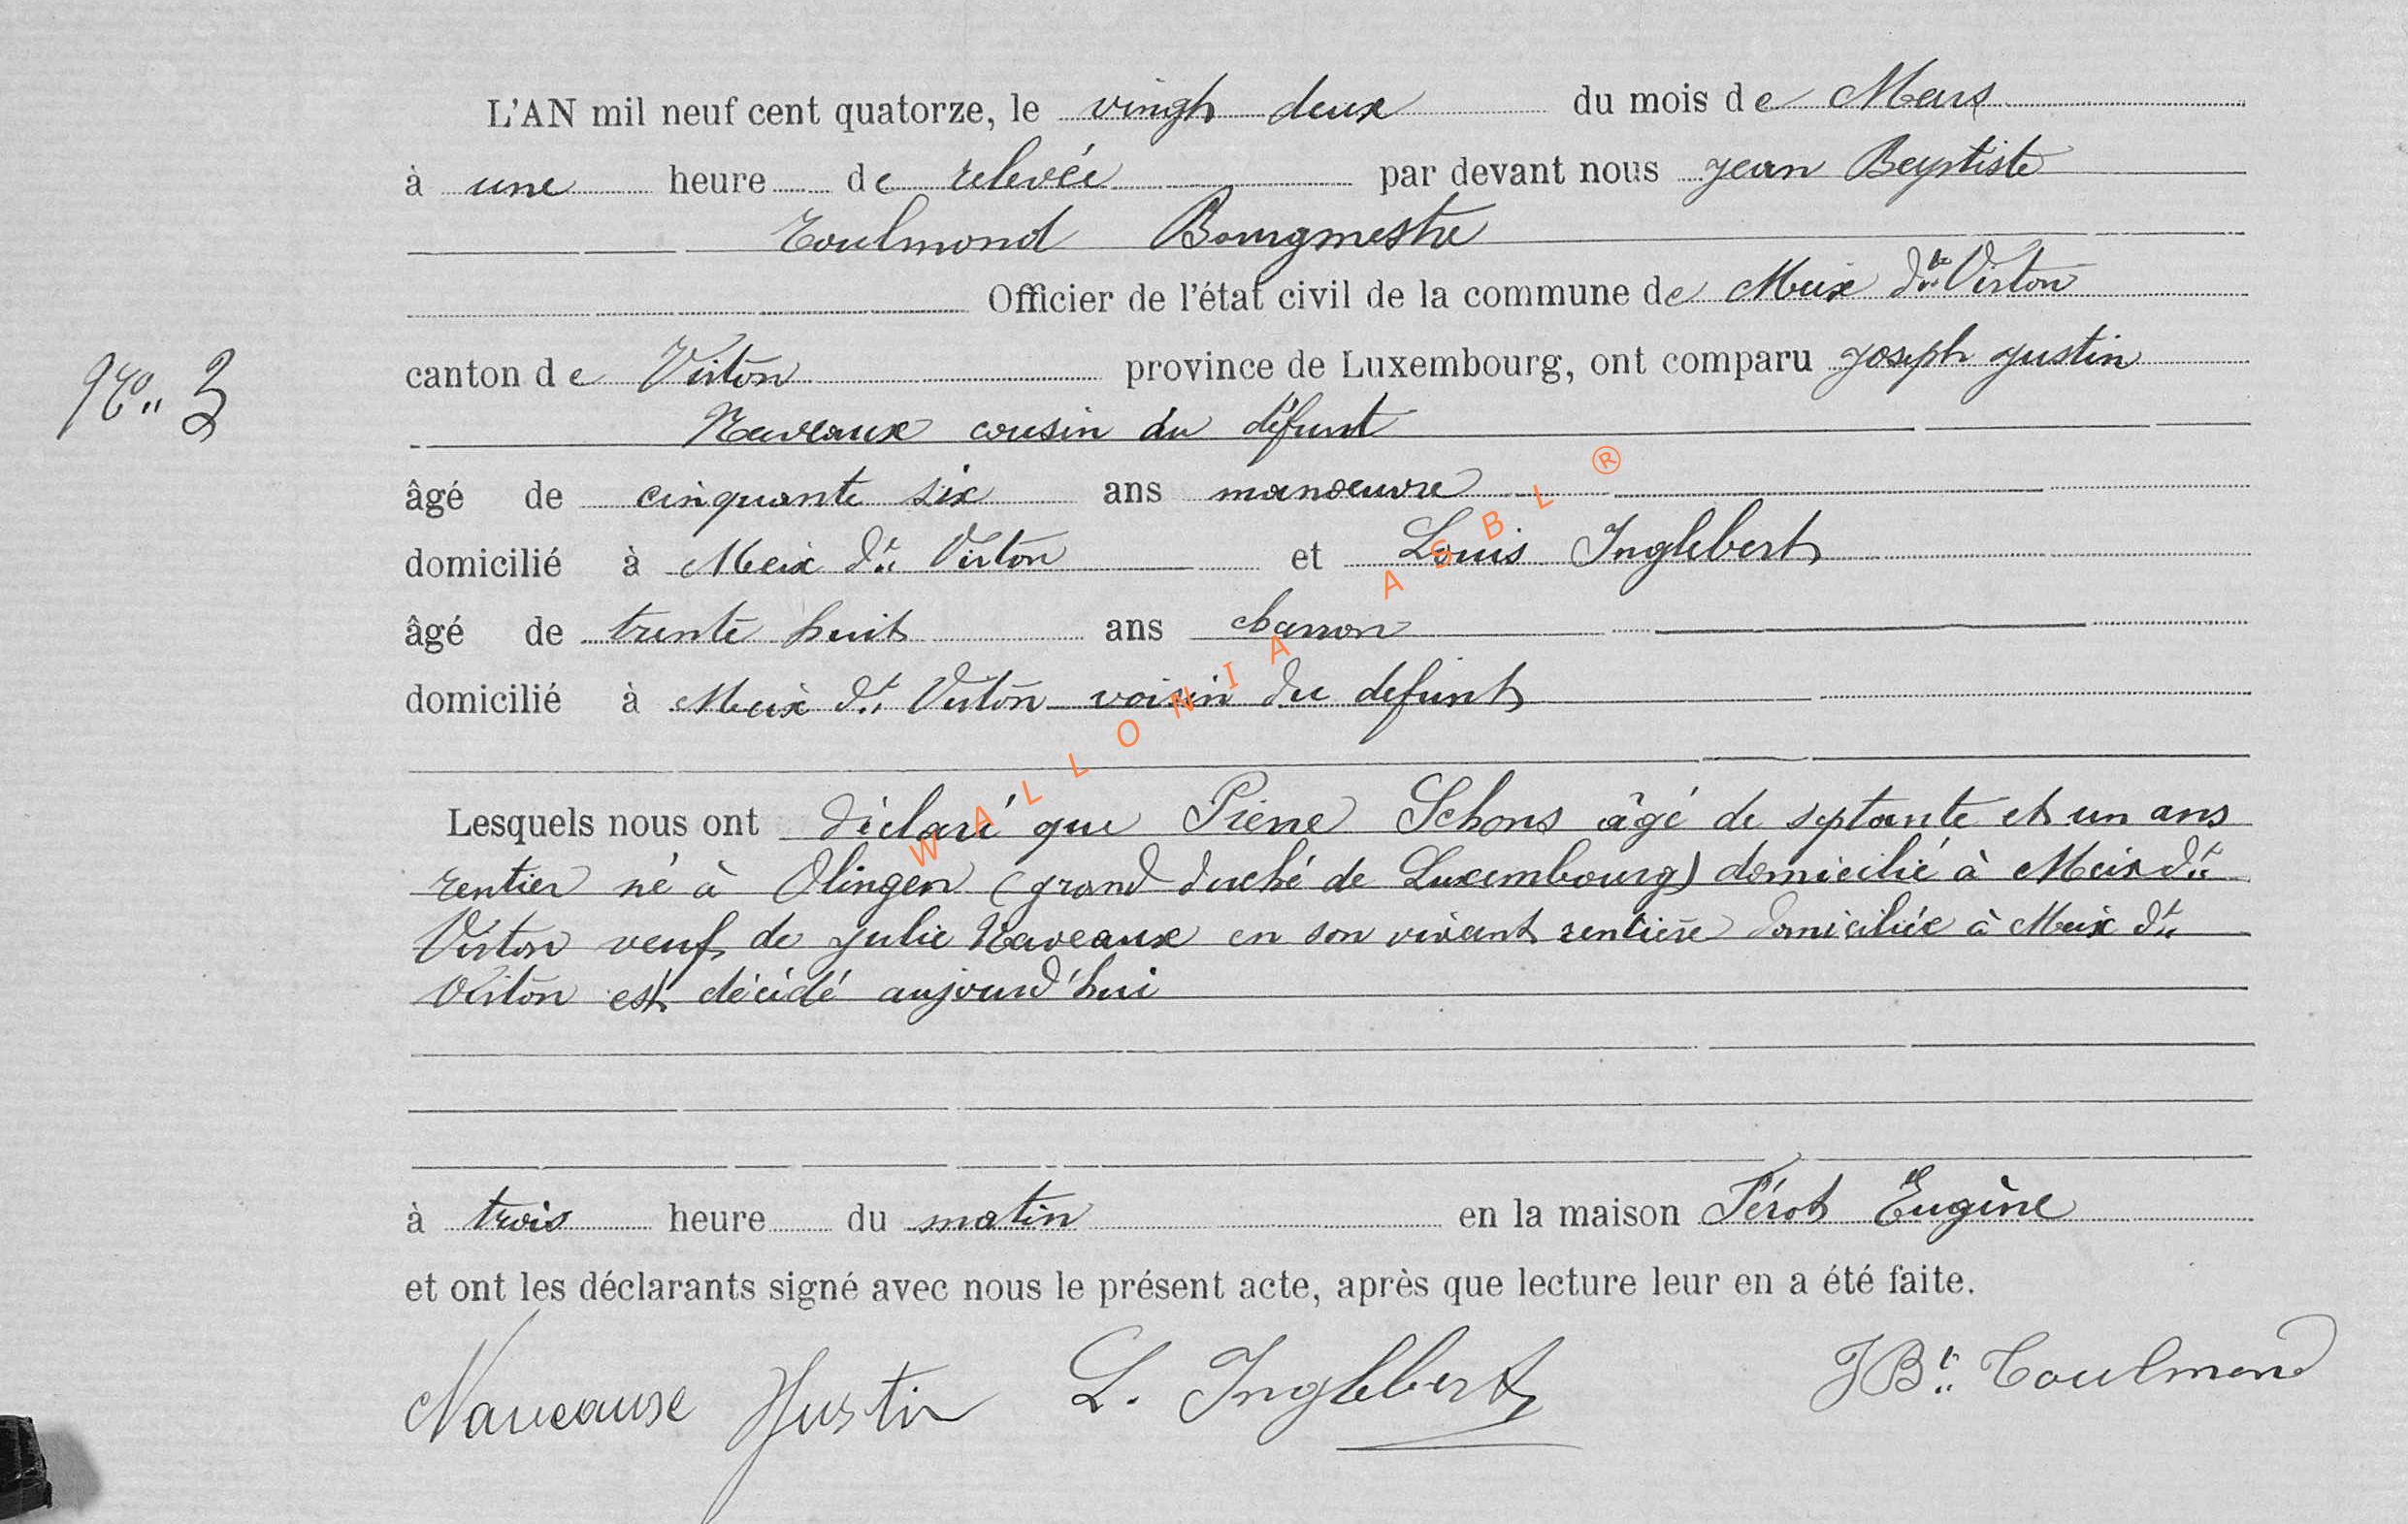 L'AN mil neuf cent quatorze, le vingt deux du mois de Mars
à une heure de relevée par devant nous Jean Baptiste
Toulmond Bourgmestre
Officier de l'état civil de la commune de Meix dt Virton
N° 3
canton de Virton province de Luxembourg, ont comparu Joseph Justin
Naveaux cousin du défunt
âgé de cinquante six ans manoeuvre
domicilié à Meix dt Virton et Louis Inglebert
âgé de trente huit ans charron
domicilié à Meix dt Virton voisin du defunt
Lesquels nous ont déclaré que Pierre Schons âgé de septante et un ans
rentier né à Olingen (grand duché de Luxembourg) domicilié à Meix dt
Virton veuf de Julie Naveaux en son vivant rentière domiciliée à Meix dt
Virton est décédé aujourd'hui
à trois heure du matin en la maison Pérot Eugène
et ont les déclarants signé avec nous le présent acte, après que lecture leur en a été faite.
Naveaux Justin L. Inglebert JBt Toulmond
WALLONIA ASBL ®